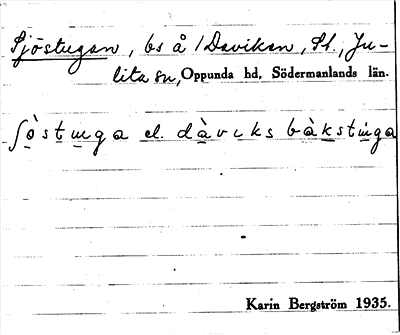 Sjöstugan, bs å 1 Daviken, St., Ju-
lita sn, Oppunda hd, Södermanlands län.
ʃò̱stu̱ga el. dàvi̱ks bàkstu̱ga
Karin Bergström 1935.